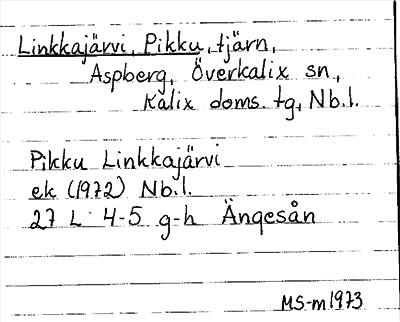 Linkkajärvi, Pikku, tjärn,
Aspberg, Överkalix sn,
Kalix doms. tg, Nb.l.
Pikku Linkkajärvi
ek (1972) Nb.l.
27 L 4-5 g-h Ängesån
MS-m1973